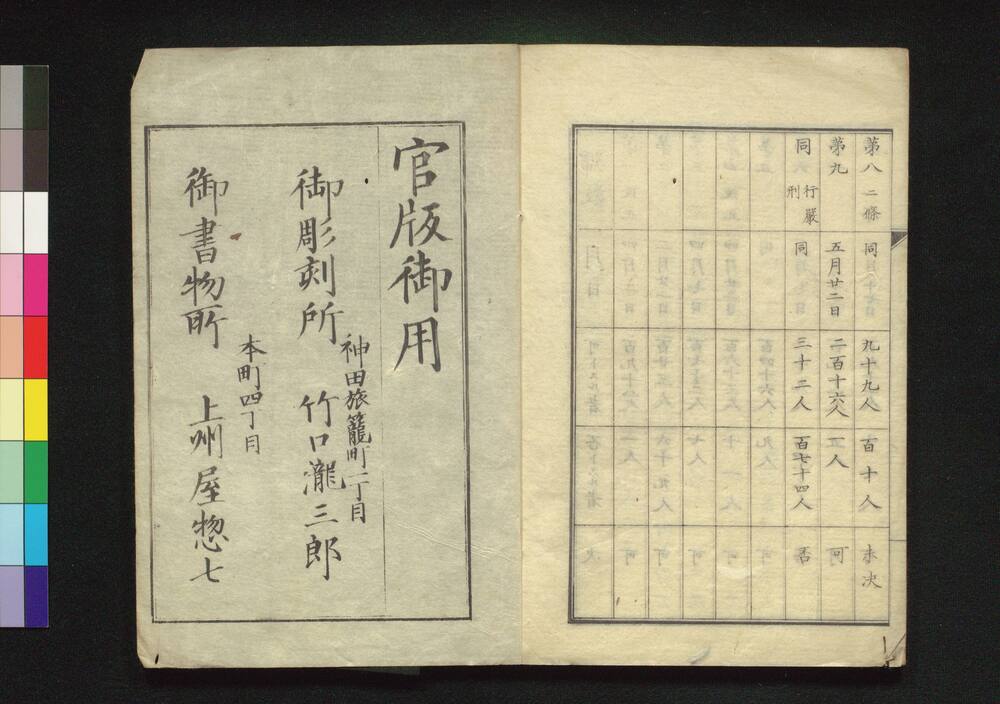 第八 二條 同 九十九人 百十人 未决
第九 五月廿二日 二百十六人 五人 可
同 行嚴刑 同 三十二人 百七十四人 否
官版御用
神田旅籠町一丁目
御彫刻所 竹口瀧三郎
本町四丁目
御書物所 上州屋惣七